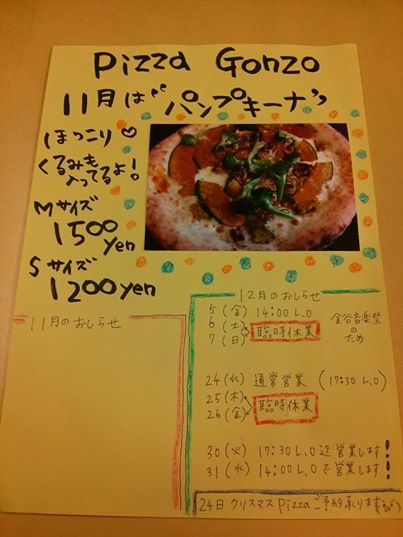 Pizza Gonzo
11月は"パンプキーナ"
ほっこり♡
くるみも
入ってるよ!
Mサイズ
1500
yen
Sサイズ
1200 yen
11月のおしらせ
12月のおしらせ
5(金) 14:00 L.O
6(土) 臨時休業
7(日)
金谷音楽祭
のため
24(水) 通常営業 (17:30 L.O)
25(木) 臨時休業
26(金)
30(火) 17:30 L.O迄営業します
31(水) 14:00 L.Oで営業します!
24日 クリスマス Pizza ご予約承ります